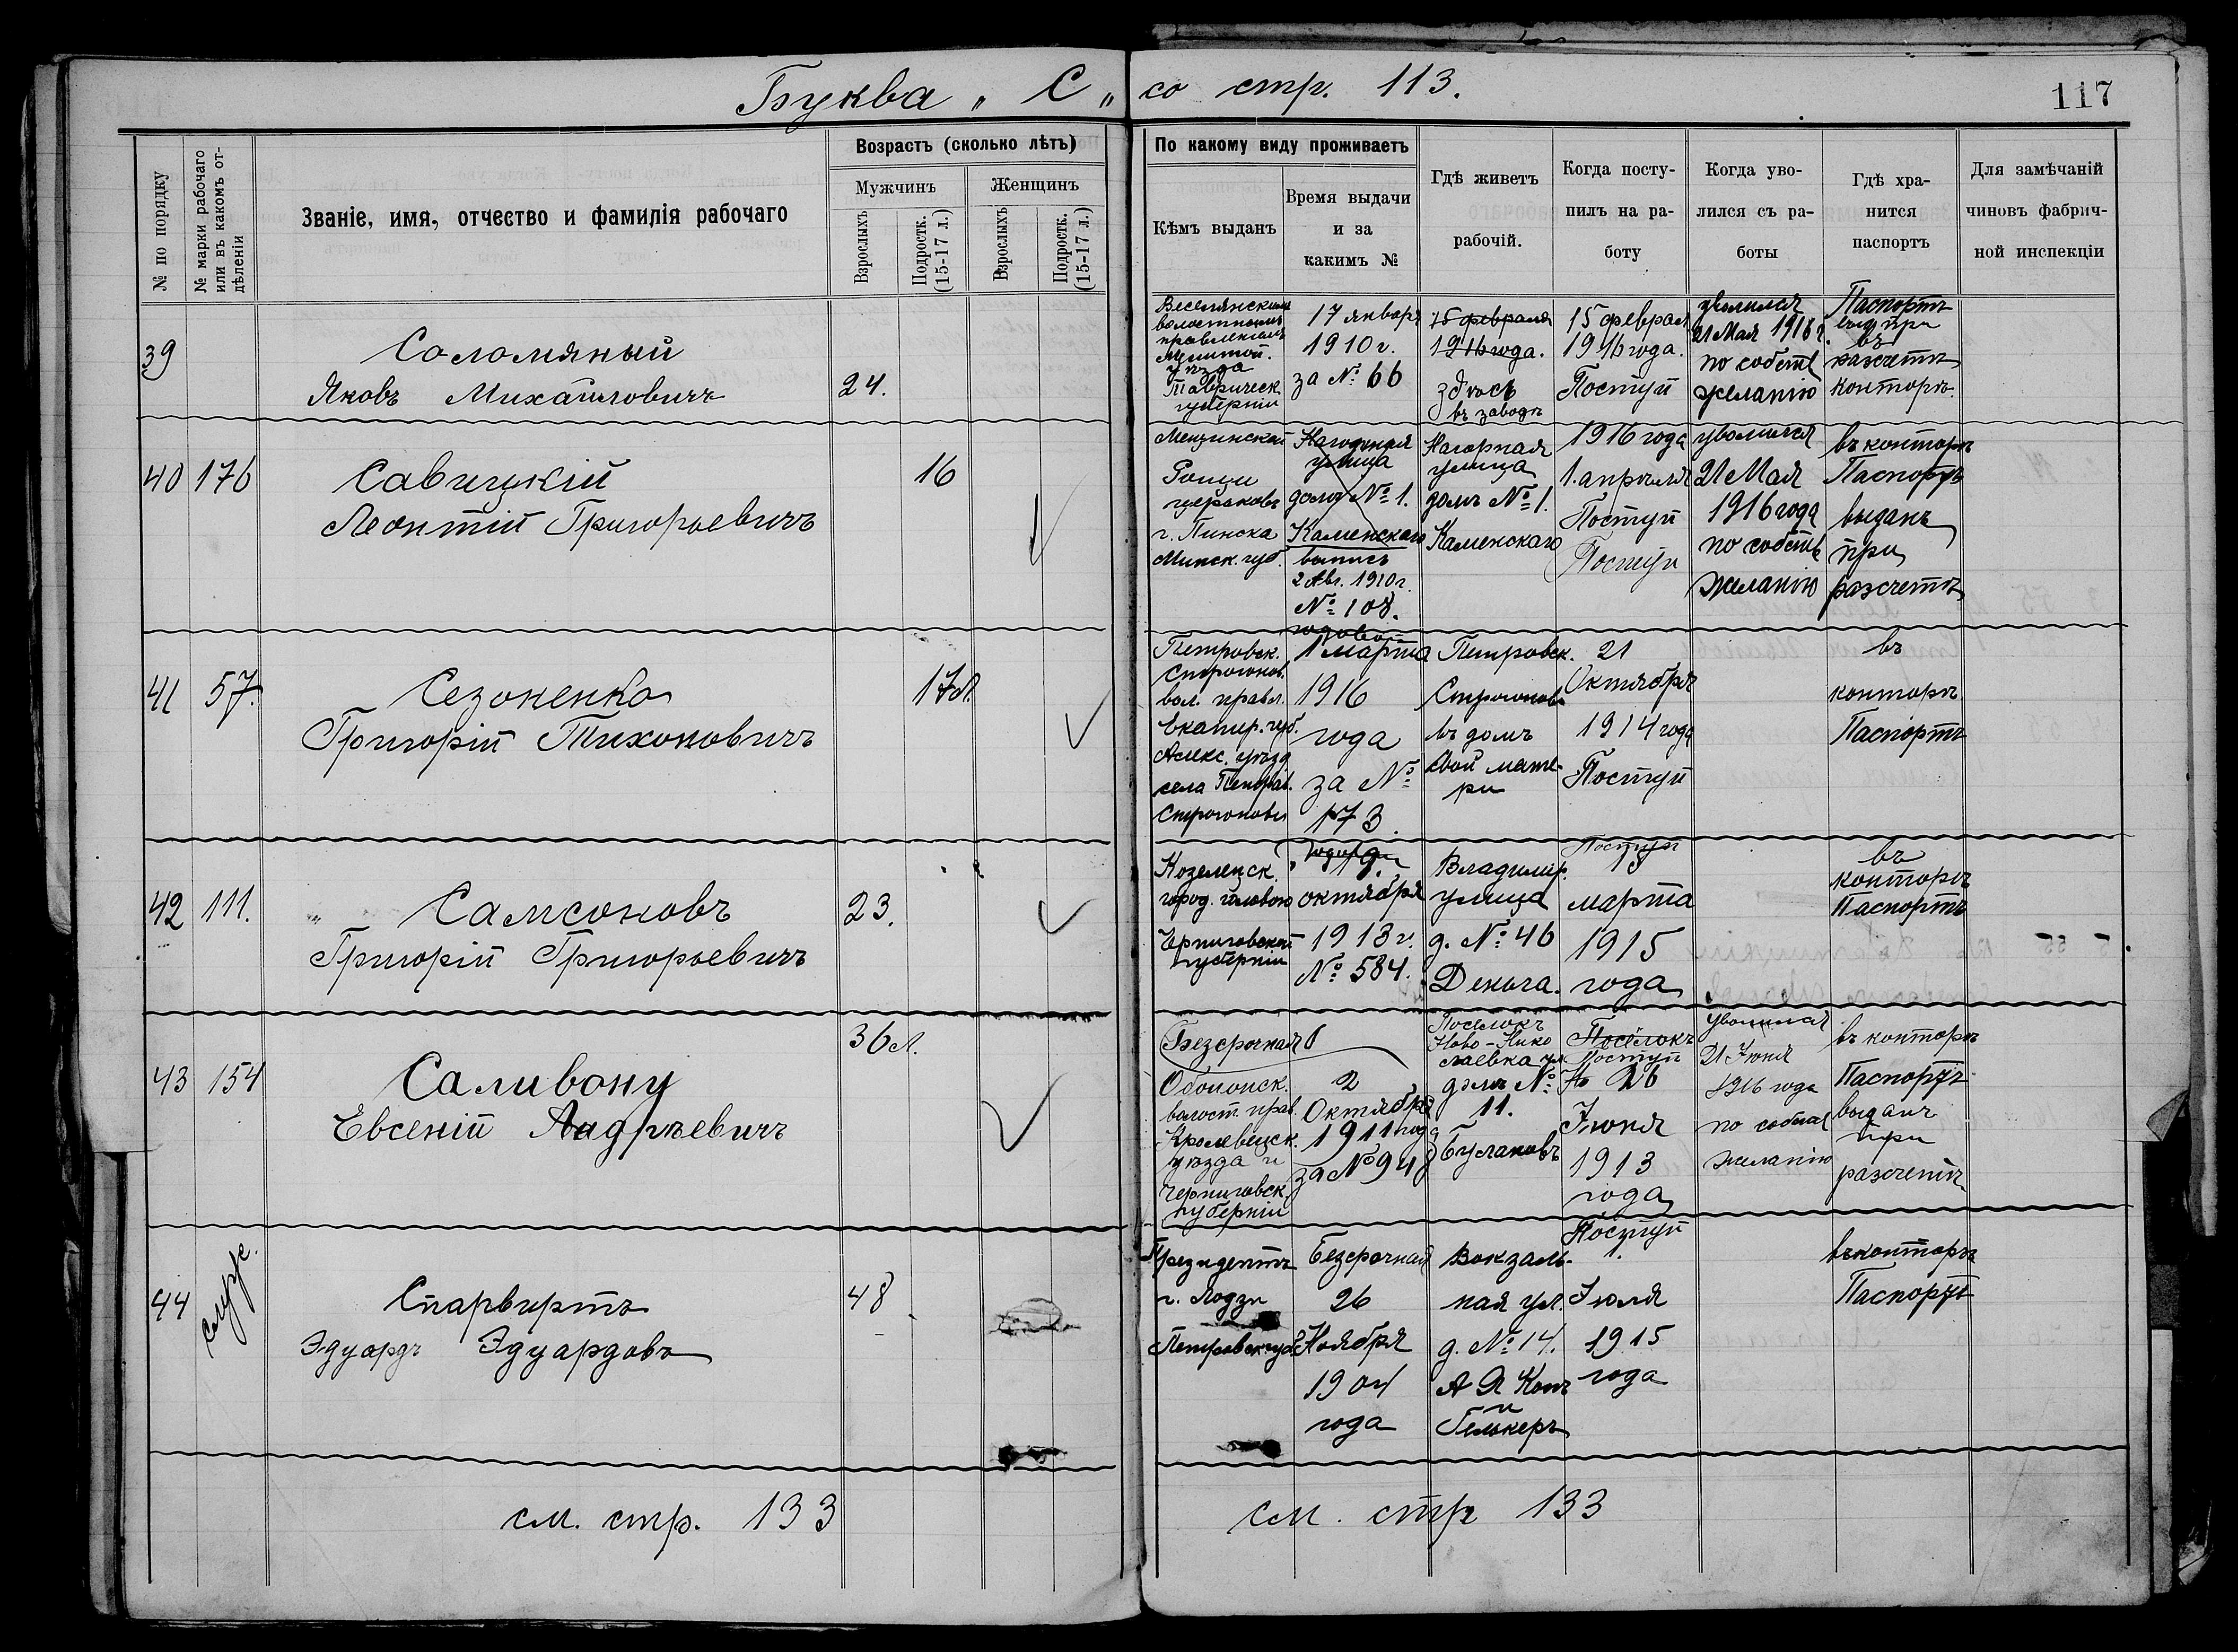 Буква „ С „ со стр. 113.
117
№ по порядку
№ марки рабочаго или въ какомъ отдѣленіи
Званіе, имя, отчество и фамилія рабочаго
Возрастъ (сколько лѣтъ)
Мужчинъ
Женщинъ
Взрослыхъ
Подростк. (15-17 л.)
Взрослыхъ
Подростк. (15-17 л.)
По какому виду проживаетъ
Кѣмъ выданъ
Время выдачи
и за
какимъ №
Гдѣ живетъ
рабочій.
Когда посту-
пилъ на ра-
боту
Когда уво-
лился съ ра-
боты
Гдѣ хра-
нится
паспортъ
Для замѣчаній
чиновъ фабрич-
ной инспекціи
39
Соломяный
Яковъ Михайловичъ
24.
Веселянскимъ
волостнымъ
правленіемъ
Мелитоп.
уѣзда
Таврическ.
губерніи
17 январ
1910 г.
за № 66
15 февраля
1916 года.
здѣсь
въ заводѣ
15 феврал
1916 года.
Поступ
уволился
21 Мая 1916 г.
по собств
желанію
Паспортъ
при
въ
разсчетѣ
конторѣ.
40
176
Савицкій
Леонтій Григорьевичъ
16
Рощи
церковь
г. Пинска
Минск. губ.
Нагорная
улица
домъ № 1.
Каменскаго
выпись
2 Авг. 1910 г.
№ 108.
Нагорная
улица
домъ № 1.
Каменскаго
1916 года
1. апрѣля
Поступ
Поступ
уволился
21 Мая
1916 года
по собств
желанію
въ конторѣ
Паспортъ
выданъ
при
разсчетѣ
41
57.
Сезоненко
Григорій Тихоновичъ
17 л.
Петровск.
Строгонов.
вол. правл.
Екатер. губ.
Алекс. уѣзд
села Петров.
Строгоновы
годовой
1 марта
1916
года
за №
173.
Петровск.
Строгонов
въ домѣ
свой мате-
ри
21
Октября
1914 года
Поступ
въ
конторѣ
Паспортъ
42
111.
Самсоновъ
Григорій Григорьевичъ
23.
Козелецск.
город. головою
Черниговской
губерніи
19.
октября
1913 г.
№ 584.
Владимір.
улица
д. № 46
Деньга.
Поступ
15
марта
1915
года
въ
конторѣ
Паспортъ
43
154
Саливону
Евсеній Андрѣевичъ
36 л.
Безсрочная
Оболонск.
волост. прав.
Кролевецск.
уѣзда
Черниговск.
губерніи
2
Октября
1911 года
за № 94
Посёлокъ
Ново-Нико
лаевка ул.
домъ №
11.
Буслаковъ
Посёлокъ
Поступ
26
Іюня
1913
года
Уволился
21 Іюня
1916 года
по собств
желанію
въ конторѣ
Паспортъ
выданъ
при
разсчетѣ
44
служ.
Спарвиртъ
Эдуардъ Эдуардовъ
48
Президентъ
г. Лодзи
Петровск губ.
Безсрочная
26
Ноября
1904
года
Вокзаль-
ная ул.
д. № 14.
А Я Копъ
и
Гелькеръ
Поступ
1.
Іюля
1915
года
въ конторѣ
Паспортъ
см. стр. 133
см. стр 133